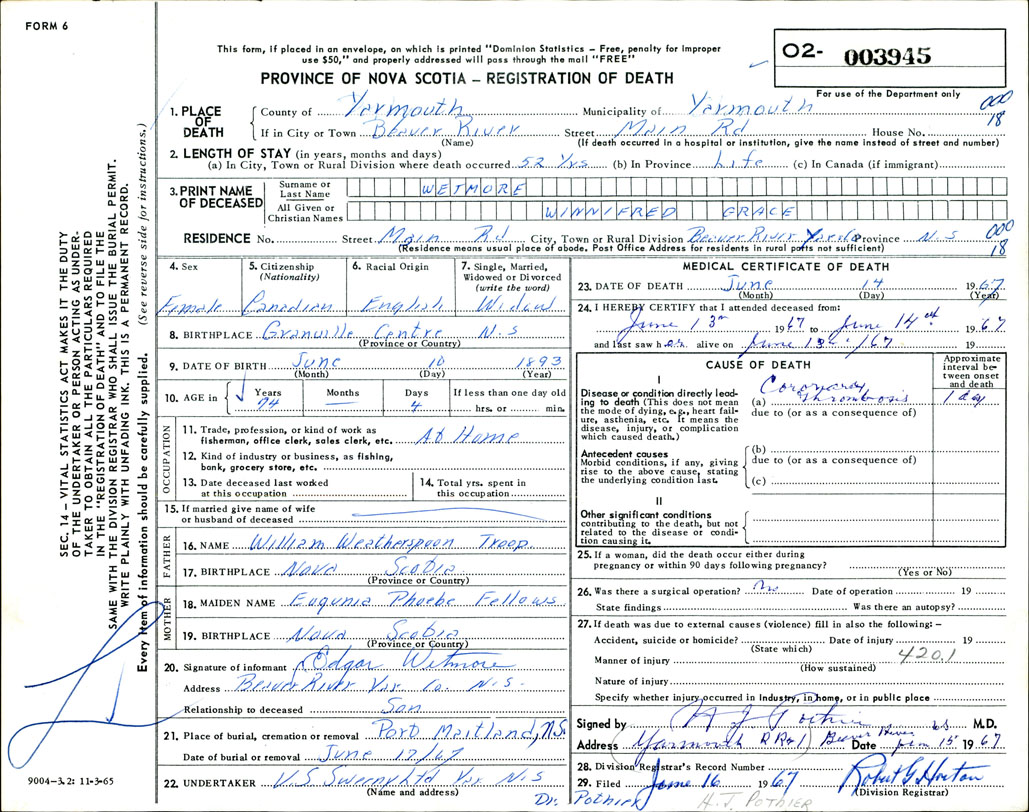 FORM 6
This form, if placed in an envelope, on which is printed "Dominion Statistics – Free, penalty for improper
use $50," and properly addressed will pass through the mail "FREE"
PROVINCE OF NOVA SCOTIA – REGISTRATION OF DEATH
O2- 003945
For use of the Department only
SEC. 14 – VITAL STATISTICS ACT MAKES IT THE DUTY
OF THE UNDERTAKER OR PERSON ACTING AS UNDER-
TAKER TO OBTAIN ALL THE PARTICULARS REQUIRED
IN THE "REGISTRATION OF DEATH" AND TO FILE THE
SAME WITH THE DIVISION REGISTRAR WHO SHALL ISSUE THE BURIAL PERMIT.
WRITE PLAINLY WITH UNFADING INK. THIS IS A PERMANENT RECORD.
Every item of information should be carefully supplied. (See reverse side for instructions.)
1. PLACE OF DEATH
County of Yarmouth Municipality of Yarmouth 000 18
If in City or Town Beaver River Street Main Rd House No.
(Name) (If death occurred in a hospital or institution, give the name instead of street and number)
2. LENGTH OF STAY (in years, months and days)
(a) In City, Town or Rural Division where death occurred 52 Yrs (b) In Province Life (c) In Canada (if immigrant)
3. PRINT NAME OF DECEASED
Surname or Last Name WETMORE
All Given or Christian Names WINNIFRED GRACE
RESIDENCE No. Street Main Rd City, Town or Rural Division Beaver River Province N.S 000 18
(Residence means usual place of abode. Post Office Address for residents in rural parts not sufficient)
4. Sex Female
5. Citizenship (Nationality) Canadian
6. Racial Origin English
7. Single, Married, Widowed or Divorced (write the word) Widow
8. BIRTHPLACE Granville Centre N.S
(Province or Country)
9. DATE OF BIRTH June 10 1893
(Month) (Day) (Year)
10. AGE in Years 74 Months Days 4 If less than one day old hrs. or min.
OCCUPATION
11. Trade, profession, or kind of work as fisherman, office clerk, sales clerk, etc. At Home
12. Kind of industry or business, as fishing, bank, grocery store, etc.
13. Date deceased last worked at this occupation
14. Total yrs. spent in this occupation
15. If married give name of wife or husband of deceased
FATHER
16. NAME William Weatherspoon Troop
17. BIRTHPLACE Nova Scotia
(Province or Country)
MOTHER
18. MAIDEN NAME Eugunia Phoebe Fellows
19. BIRTHPLACE Nova Scotia
(Province or Country)
20. Signature of informant Edgar Wetmore
Address Beaver River Yar. Co. N.S.
Relationship to deceased Son
21. Place of burial, cremation or removal Port Maitland, N.S.
Date of burial or removal June 17/67
22. UNDERTAKER V.S Sweeny Ltd Yar. N.S
(Name and address)
9004-3.2: 11-3-65
MEDICAL CERTIFICATE OF DEATH
23. DATE OF DEATH June 14 1967
(Month) (Day) (Year)
24. I HEREBY CERTIFY that I attended deceased from:
June 13th 1967 to June 14th 1967
and last saw her alive on June 13th/67 19
CAUSE OF DEATH
Approximate interval between onset and death
I
Disease or condition directly leading to death (This does not mean the mode of dying, e.g., heart failure, asthenia, etc. It means the disease, injury, or complication which caused death.)
(a) Coronary Thrombosis 1 day
due to (or as a consequence of)
Antecedent causes
Morbid conditions, if any, giving rise to the above cause, stating the underlying condition last.
(b)
due to (or as a consequence of)
(c)
II
Other significant conditions
contributing to the death, but not related to the disease or condition causing it.
25. If a woman, did the death occur either during
pregnancy or within 90 days following pregnancy?
(Yes or No)
26. Was there a surgical operation? No Date of operation 19
State findings Was there an autopsy?
27. If death was due to external causes (violence) fill in also the following: –
Accident, suicide or homicide? Date of injury 19
(State which)
Manner of injury 420.1
(How sustained)
Nature of injury
Specify whether injury occurred in Industry, in home, or in public place
Signed by H J Pothier M.D.
Address Yarmouth RR#1 Beaver River Date June 15 1967
28. Division Registrar's Record Number
29. Filed June 16 1967 Robert G Horton
(Division Registrar)
Dr. Pothier H.J. POTHIER